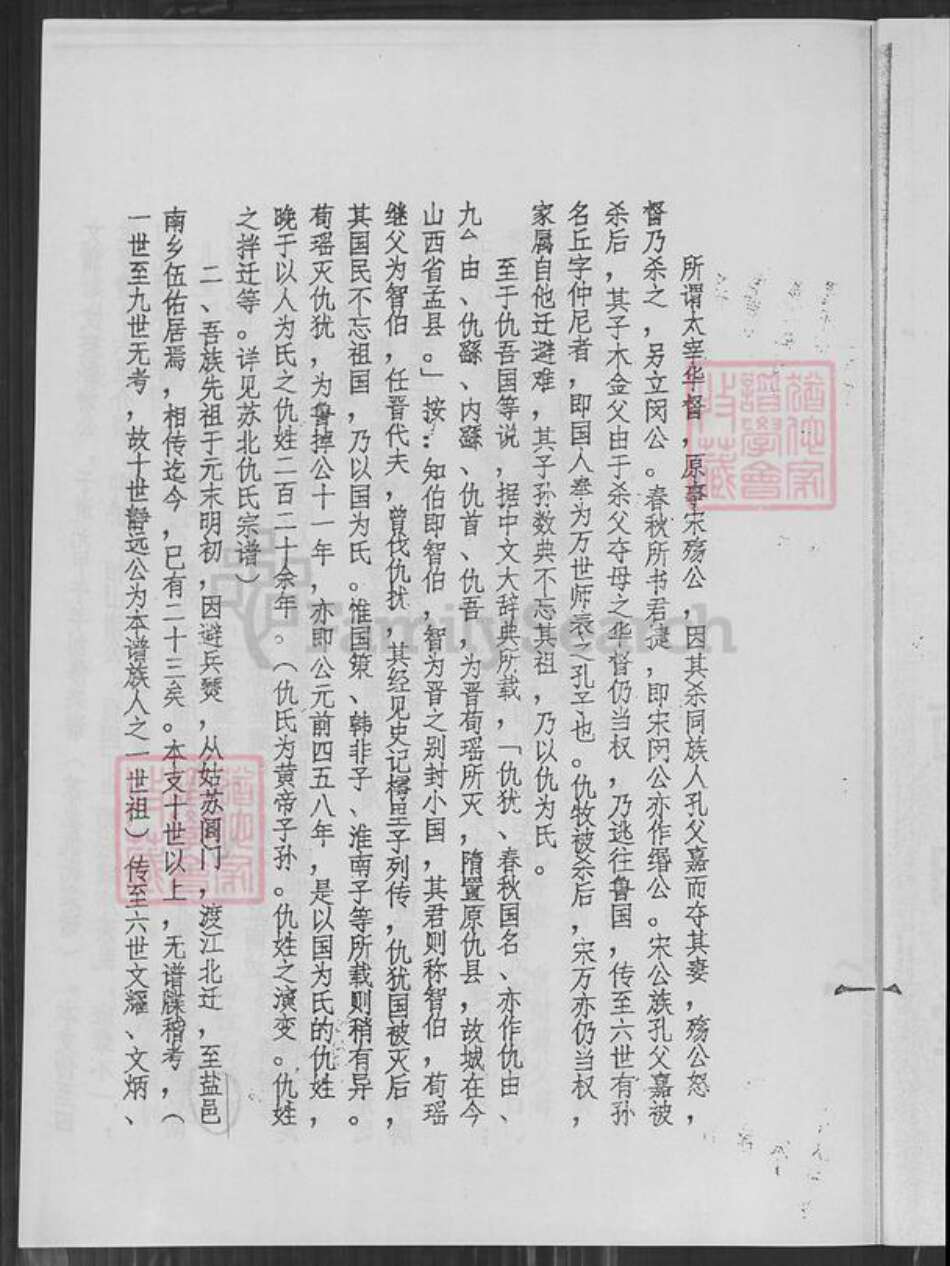 所谓太宰华督，原事宋殇公，因其杀同族人孔父嘉而夺其妻，殇公怒，
督乃杀之，另立闵公。春秋所书君捷，即宋闵公亦作缗公。宋公族孔父嘉被
杀后，其子木金父由于杀父夺母之华督仍当权，乃逃往鲁国，传至六世有孙
名丘字仲尼者，即国人奉为万世师表之孔子也。仇牧被杀后，宋万亦仍当权，
家属自他迁避难，其子孙数典不忘其祖，乃以仇为氏。
至于仇吾国等说，据中文大辞典所载，「仇犹、春秋国名、亦作仇由、
九由、仇繇、内繇、仇首、仇吾，为晋荀瑶所灭，隋置原仇县，故城在今
山西省孟县。」按：知伯即智伯，智为晋之别封小国，其君则称智伯，荀瑶
继父为智伯，任晋代夫，曾伐仇扰，其经见史记樗里子列传，仇犹国被灭后，
其国民不忘祖国，乃以国为氏。惟国策、韩非子、淮南子等所载则稍有异。
荀瑶灭仇犹，为鲁掉公十一年，亦即公元前四五八年，是以国为氏的仇姓，
晚于以人为氏之仇姓二百二十余年。（仇氏为黄帝子孙。仇姓之演变。仇姓
之拌迁等。详见苏北仇氏宗谱）
二、吾族先祖于元末明初，因避兵燹，从姑苏阊门，渡江北迁，至盐邑
南乡伍佑居焉，相传迄今，已有二十三矣。本支十世以上，无谱牒稽考，（
一世至九世无考，故十世静远公为本谱族人之一世祖）传至六世文耀、文炳、
FamilySearch